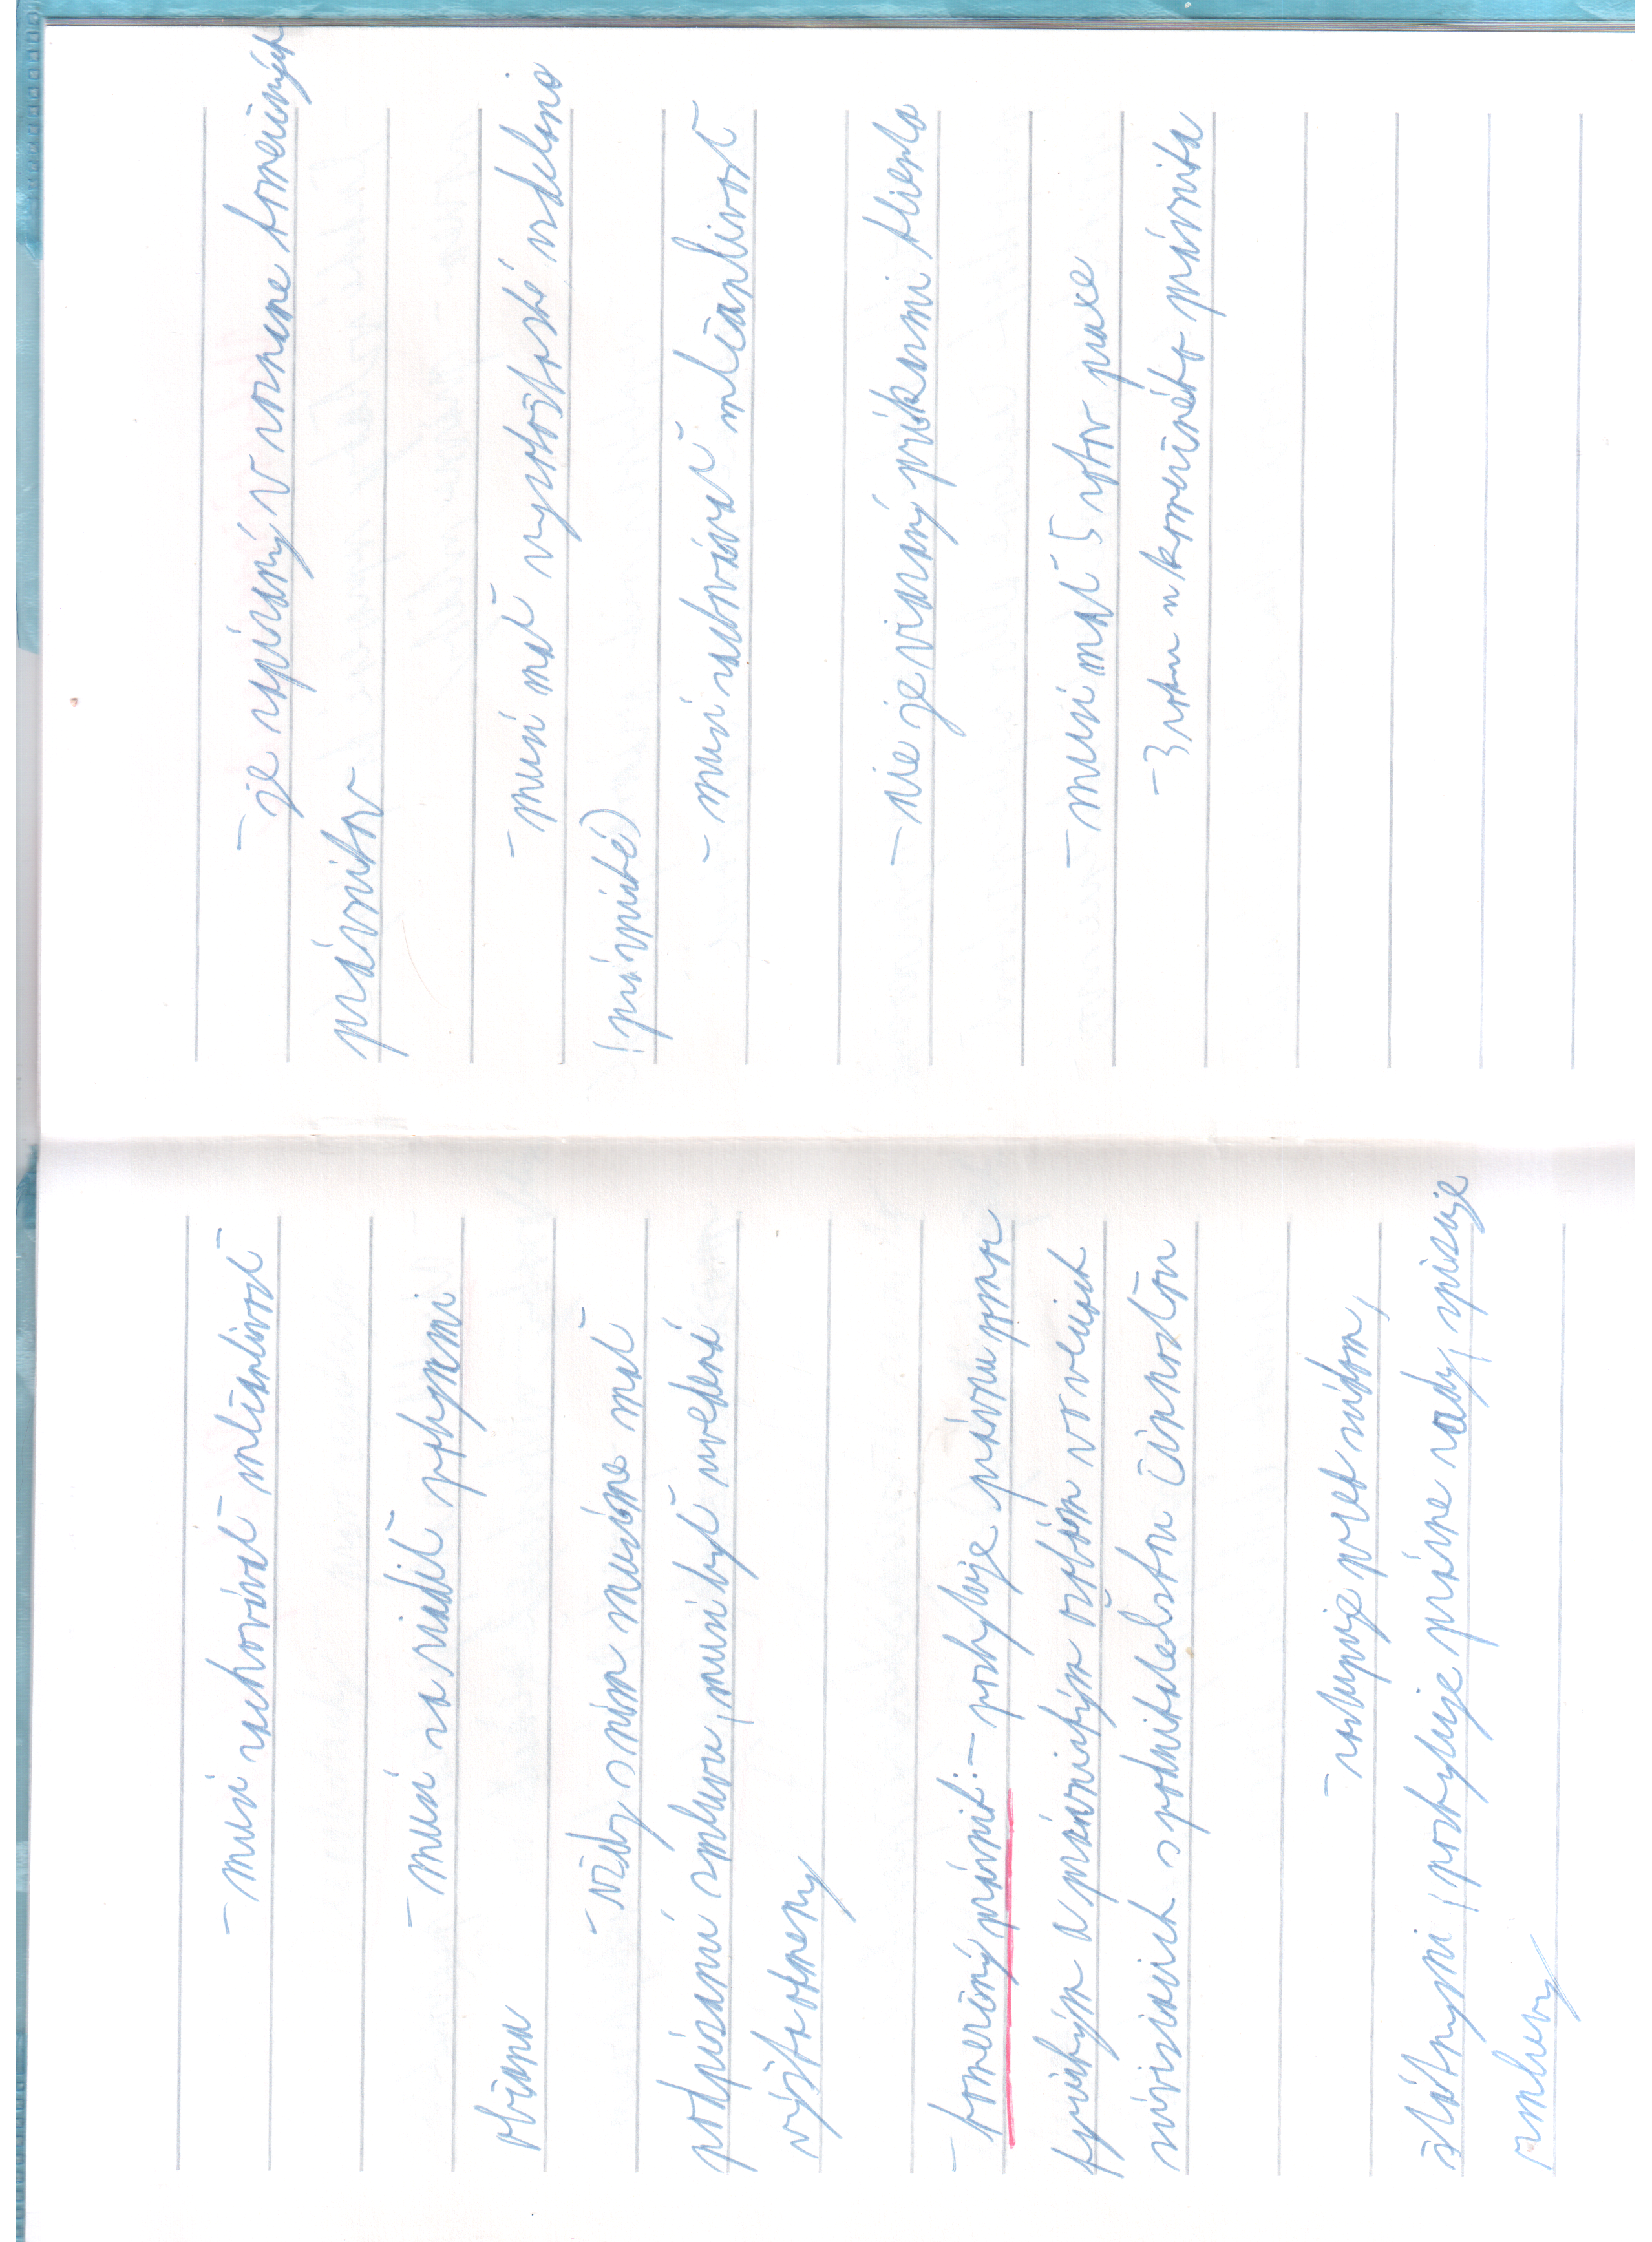 - musí zachovávať mlčanlivosť
- musí sa riadiť pokynmi
občana
- vždy s ním musíme mať
podpísanú zmluvu, musí byť uvedená
výška odmeny
- komerčný právnik: - poskytuje právnu pomoc
fyzickým a právnickým osobám vo veciach
súvisiacich s podnikateľskou činnosťou
- zastupuje pred súdom,
štátnymi, poskytuje právne rady, spisuje
zmluvy
- je zapísaný v zozname komerčných
právnikov
- musí mať vysokoškolské vzdelanie
(právnické)
- musí zachovávať mlčanlivosť
- nie je viazaný príkazmi klienta
- musí mať 5 rokov praxe
- 3 roky u komerčného právnika